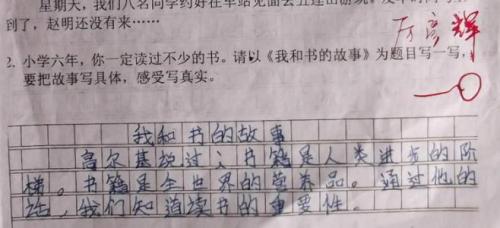 星期天，我们八名同学约好在车站见面去五莲山游玩。
到了，赵明还没有来……
2. 小学六年，你一定读过不少的书。请以《我和书的故事》为题目写一写，
要把故事写具体，感受写真实。
辉
我和书的故事
高尔基说过：书籍是人类进步的阶
梯。书籍是全世界的营养品。通过他的
话，我们知道读书的重要性。